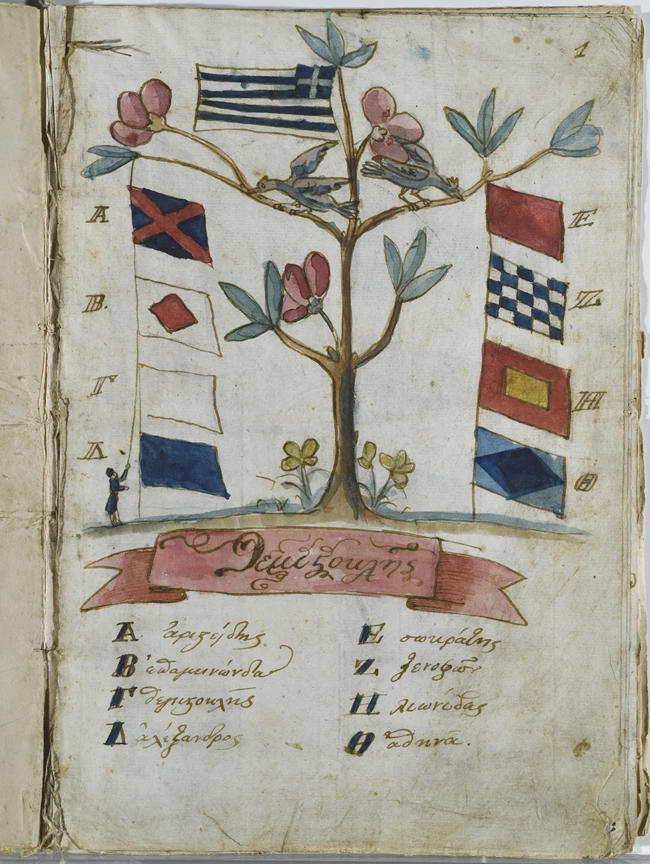 1
Α
Β
Γ
Δ
Ε
Ζ
Η
Θ
Θεμιϛοκλῆς
Α ἀριϛείδης
Β ἐπαμινώνδα
Γ θεμιϛοκλῆς
Δ ἀλέξανδρος
Ε σωκράτης
Ζ ξενοφῶν
Η λεωνίδας
Θ ἀθηνᾶ.